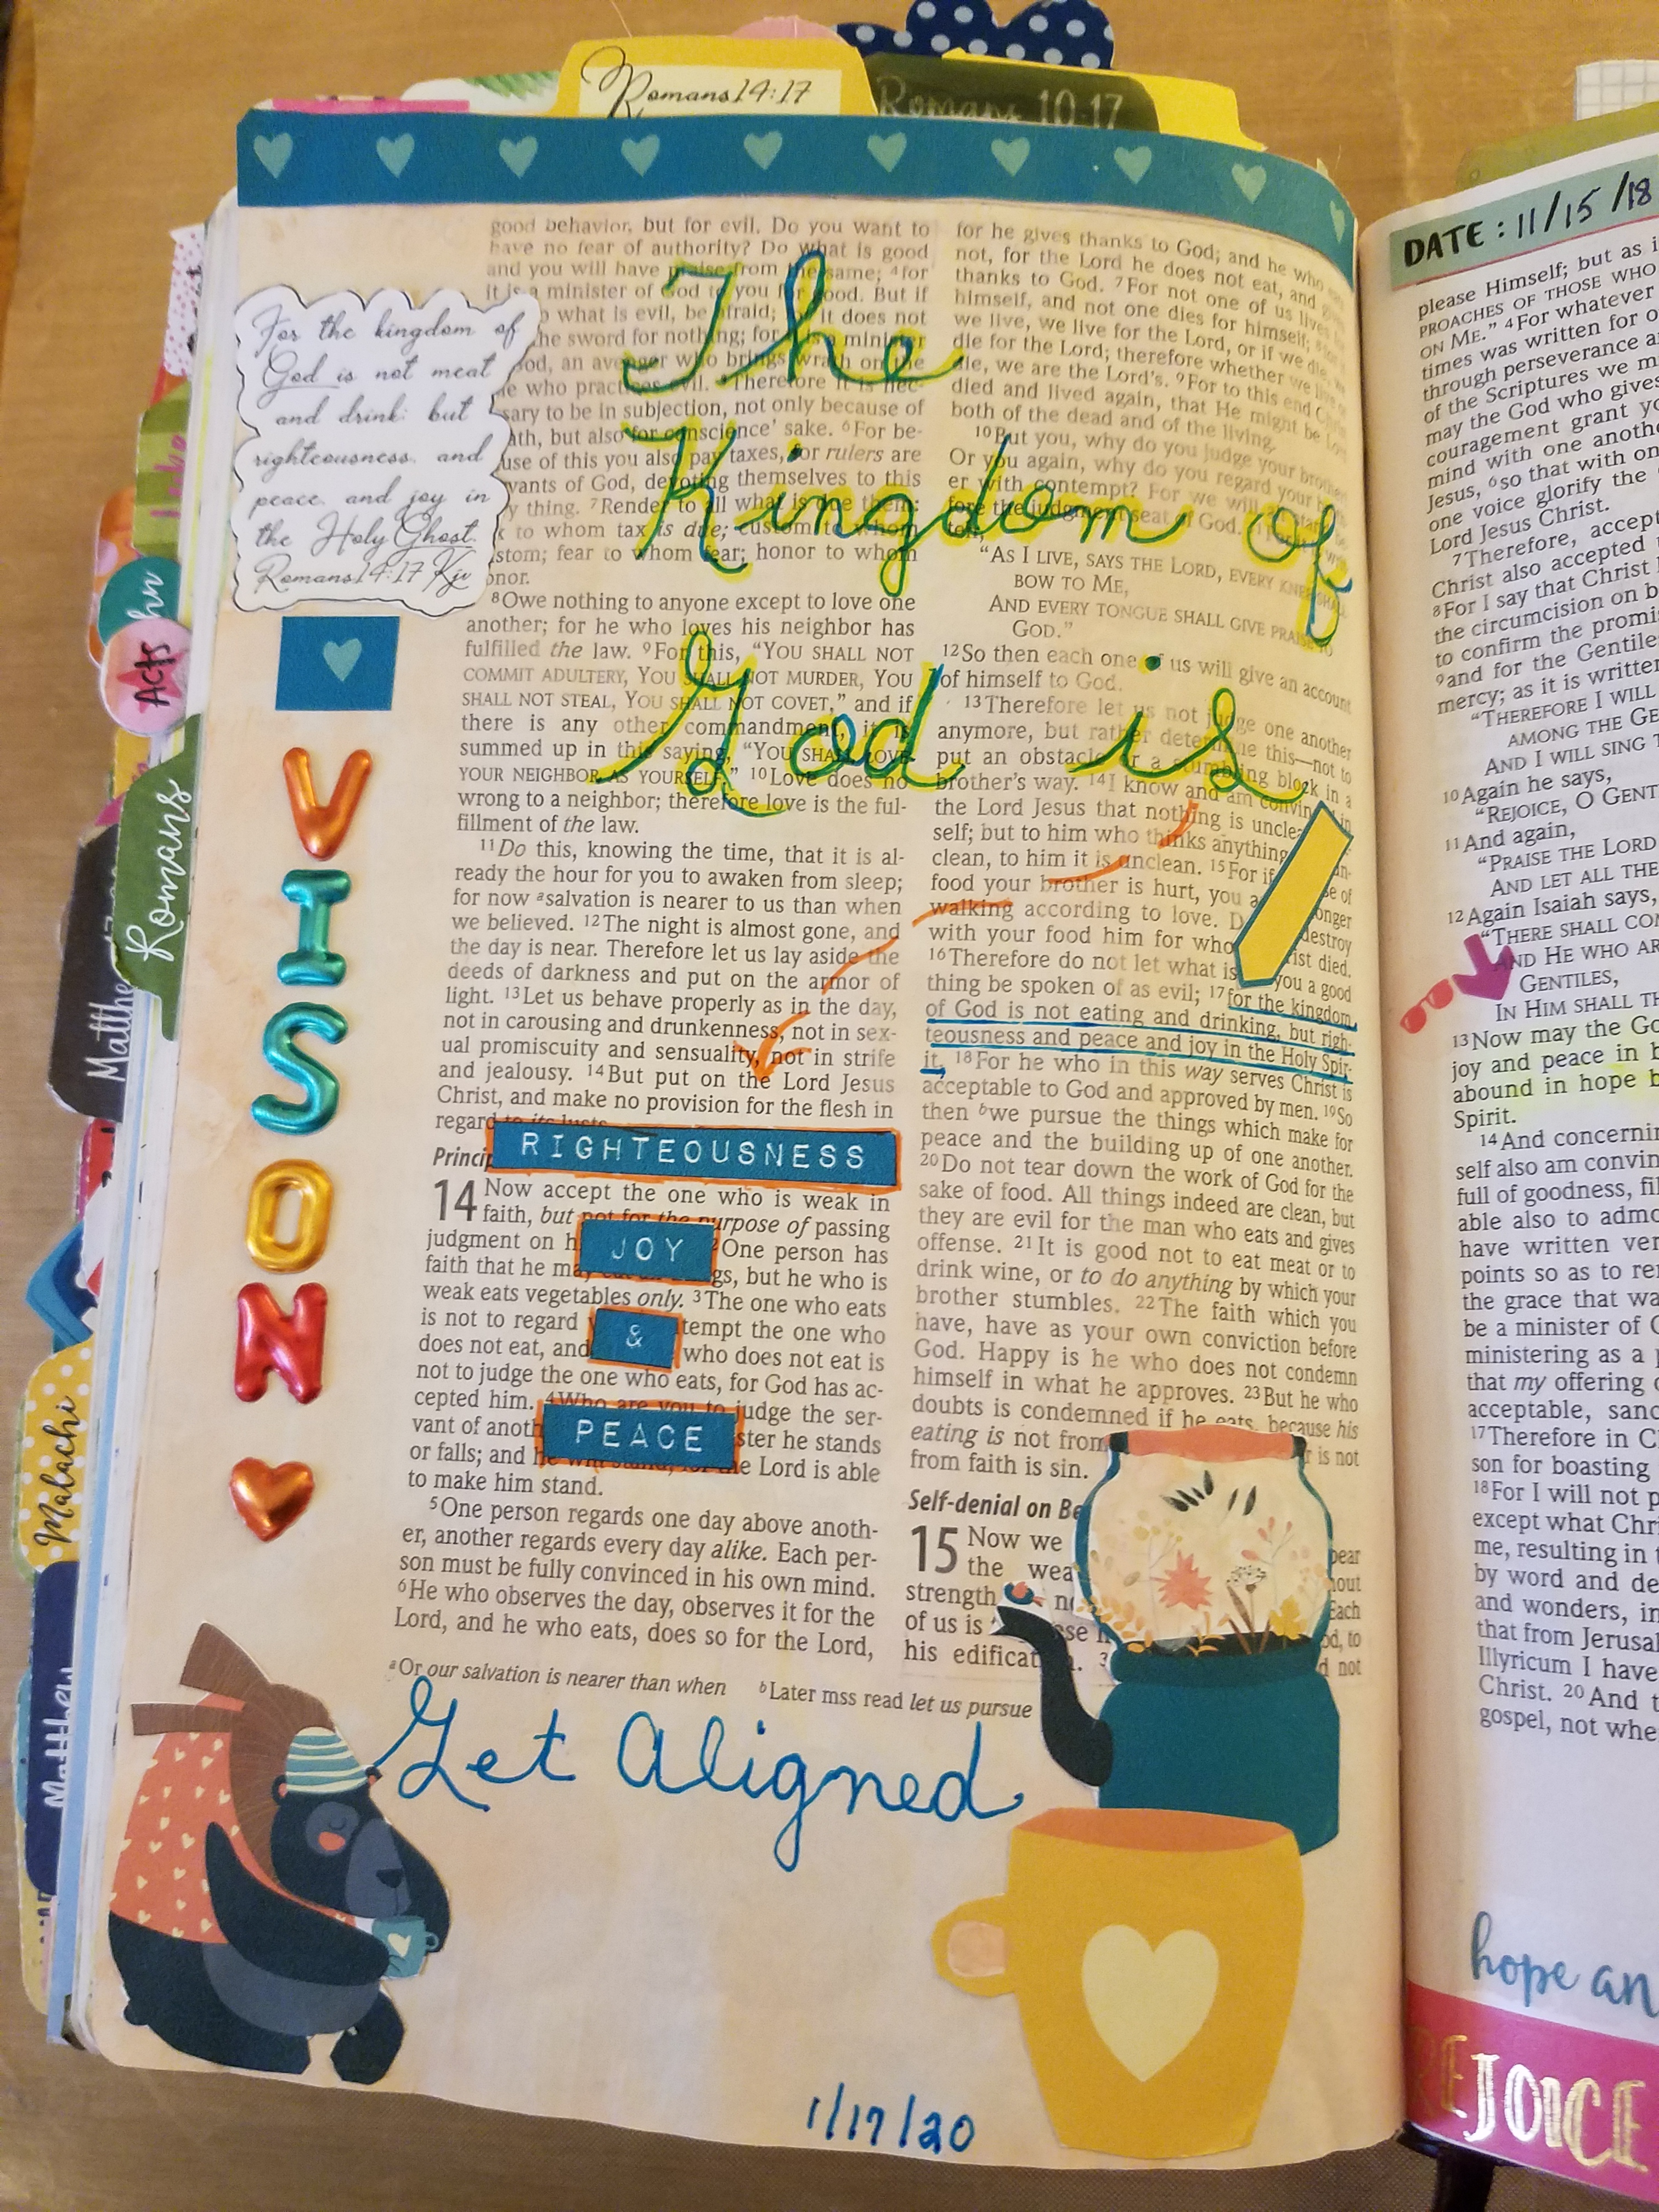 Romans 14:17
Romans 10:17
For the kingdom of
God is not meat
and drink: but
righteousness and
peace and joy in
the Holy Ghost.
Romans 14:17 Kjv
VISON
The
Kingdom of
God is
good behavior, but for evil. Do you want to
have no fear of authority? Do what is good
and you will have praise from the same; 4for
it is a minister of God to you for good. But if
what is evil, be afraid; for it does not
the sword for nothing; for is a minister
God, an avenger who brings wrath on the
who practices evil. 5Therefore it is nec-
sary to be in subjection, not only because of
ath, but also for conscience' sake. 6For be-
use of this you also pay taxes, for rulers are
vants of God, devoting themselves to this
y thing. 7Render to all what is due them:
to whom tax is due; custom to whom
stom; fear to whom fear; honor to whom
onor.
8Owe nothing to anyone except to love one
another; for he who loves his neighbor has
fulfilled the law. 9For this, “YOU SHALL NOT
COMMIT ADULTERY, YOU SHALL NOT MURDER, YOU
SHALL NOT STEAL, YOU SHALL NOT COVET,” and if
there is any other commandment, it is
summed up in this saying, “YOU SHALL LOVE
YOUR NEIGHBOR AS YOURSELF.” 10Love does no
wrong to a neighbor; therefore love is the ful-
fillment of the law.
11Do this, knowing the time, that it is al-
ready the hour for you to awaken from sleep;
for now asalvation is nearer to us than when
we believed. 12The night is almost gone, and
the day is near. Therefore let us lay aside the
deeds of darkness and put on the armor of
light. 13Let us behave properly as in the day,
not in carousing and drunkenness, not in sex-
ual promiscuity and sensuality, not in strife
and jealousy. 14But put on the Lord Jesus
Christ, and make no provision for the flesh in
regard to its lusts.
RIGHTEOUSNESS
Princip
14 Now accept the one who is weak in
faith, but not for the purpose of passing
judgment on h JOY 2One person has
faith that he may eat all things, but he who is
weak eats vegetables only. 3The one who eats
is not to regard & tempt the one who
does not eat, and who does not eat is
not to judge the one who eats, for God has ac-
cepted him. 4Who are you to judge the ser-
vant of anoth PEACE ster he stands
or falls; and he will stand, for the Lord is able
to make him stand.
5One person regards one day above anoth-
er, another regards every day alike. Each per-
son must be fully convinced in his own mind.
6He who observes the day, observes it for the
Lord, and he who eats, does so for the Lord,
for he gives thanks to God; and he who
not, for the Lord he does not eat, and
thanks to God. 7For not one of us lives
himself, and not one dies for himself;
we live, we live for the Lord, or if we die,
die for the Lord; therefore whether we live
die, we are the Lord's. 9For to this end Christ
died and lived again, that He might be Lord
both of the dead and of the living.
10But you, why do you judge your brother
Or you again, why do you regard your
er with contempt? For we will
fore the judgment seat of God.
“AS I LIVE, SAYS THE LORD, EVERY KNEE SHALL
BOW TO ME,
AND EVERY TONGUE SHALL GIVE PRAISE TO
GOD.”
12So then each one of us will give an account
of himself to God.
13Therefore let us not judge one another
anymore, but rather determine this—not to
put an obstacle or a stumbling block in a
brother's way. 14I know and am convin
the Lord Jesus that nothing is unclea
self; but to him who thinks anything
clean, to him it is unclean. 15For if
food your brother is hurt, you a onger
walking according to love. D destroy
with your food him for who ist died.
16Therefore do not let what is you a good
thing be spoken of as evil; 17for the kingdom
of God is not eating and drinking, but righ-
teousness and peace and joy in the Holy Spir-
it. 18For he who in this way serves Christ is
acceptable to God and approved by men. 19So
then bwe pursue the things which make for
peace and the building up of one another.
20Do not tear down the work of God for the
sake of food. All things indeed are clean, but
they are evil for the man who eats and gives
offense. 21It is good not to eat meat or to
drink wine, or to do anything by which your
brother stumbles. 22The faith which you
have, have as your own conviction before
God. Happy is he who does not condemn
himself in what he approves. 23But he who
doubts is condemned if he eats, because his
eating is not from r is not
from faith is sin.
Self-denial on Be
15 Now we
the wea
strength
of us is
his edificat
aOr our salvation is nearer than when bLater mss read let us pursue
Get Aligned
1/17/20
Acts
Romans
Matthe
Malachi
Matthew
DATE: 11/15/18
please Himself; but as i
PROACHES OF THOSE WHO
ON ME.” 4For whatever
times was written for o
through perseverance a
of the Scriptures we m
may the God who gives
couragement grant yo
mind with one anoth
Jesus, 6so that with on
one voice glorify the
Lord Jesus Christ.
7Therefore, accept
Christ also accepted
8For I say that Christ
the circumcision on b
to confirm the promis
9and for the Gentile
mercy; as it is written
“THEREFORE I WILL
AMONG THE GE
AND I WILL SING
10Again he says,
“REJOICE, O GENT
11And again,
“PRAISE THE LORD
AND LET ALL THE
12Again Isaiah says,
“THERE SHALL CO
AND HE WHO AR
GENTILES,
IN HIM SHALL TH
13Now may the Go
joy and peace in b
abound in hope b
Spirit.
14And concernin
self also am convin
full of goodness, fil
able also to admo
have written ver
points so as to re
the grace that wa
be a minister of
ministering as a
that my offering
acceptable, sanc
17Therefore in C
son for boasting
18For I will not p
except what Chri
me, resulting in t
by word and de
and wonders, in
that from Jerusal
Illyricum I have
Christ. 20And t
gospel, not whe
hope an
REJOICE